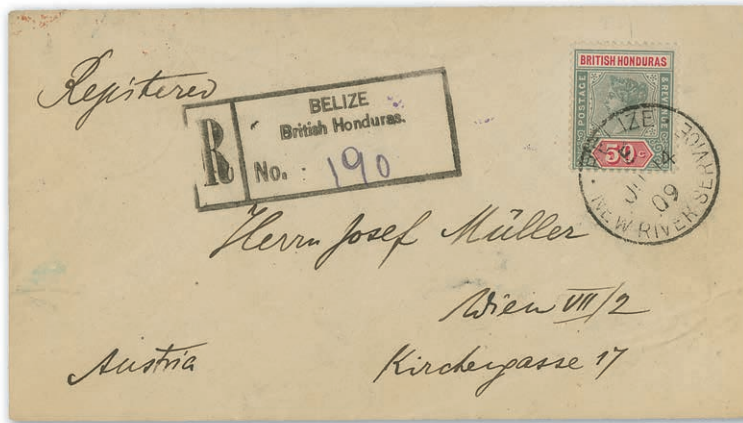 Registered
BELIZE
British Honduras.
R
No. 190
BRITISH HONDURAS
POSTAGE
& REVENUE
50 C
NEW RIVER SERVICE
09
Herrn Josef Müller
Wien VII/2
Austria
Kirchengasse 17